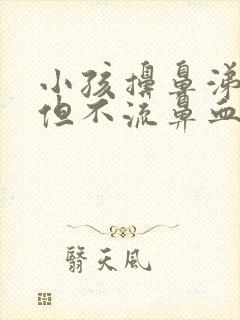 小孩擤鼻涕
但不流鼻血
翳天风